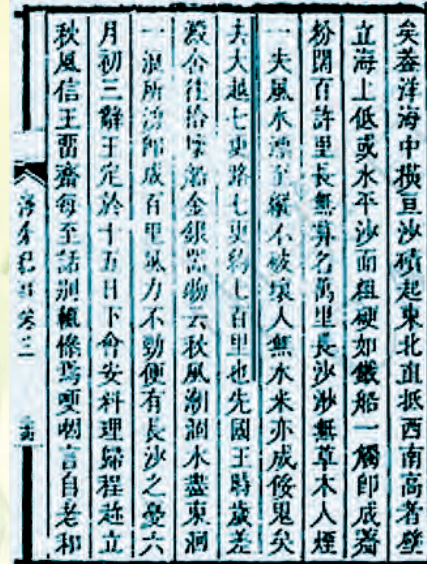 矣蓋洋海中橫亘沙磧起東北直抵西南高者壁
立海上低或水平沙面粗硬如鐵船一觸即成齏
粉闊百許里長無算名萬里長沙渺無草木人煙
一失風水漂至縱不破壞人無水米亦成餒鬼矣
去大越七更路七更約七百里也先國王時歲差
澱舍往拾壞船金銀器物云秋風潮涸水盡東洄
一浪所湧即成百里風力不勁便有長沙之憂六
月初三辭王定於十五日下會安料理歸程趂立
秋風信王畱齋每至話別輒條焉哽咽言自老和
海外紀事卷三